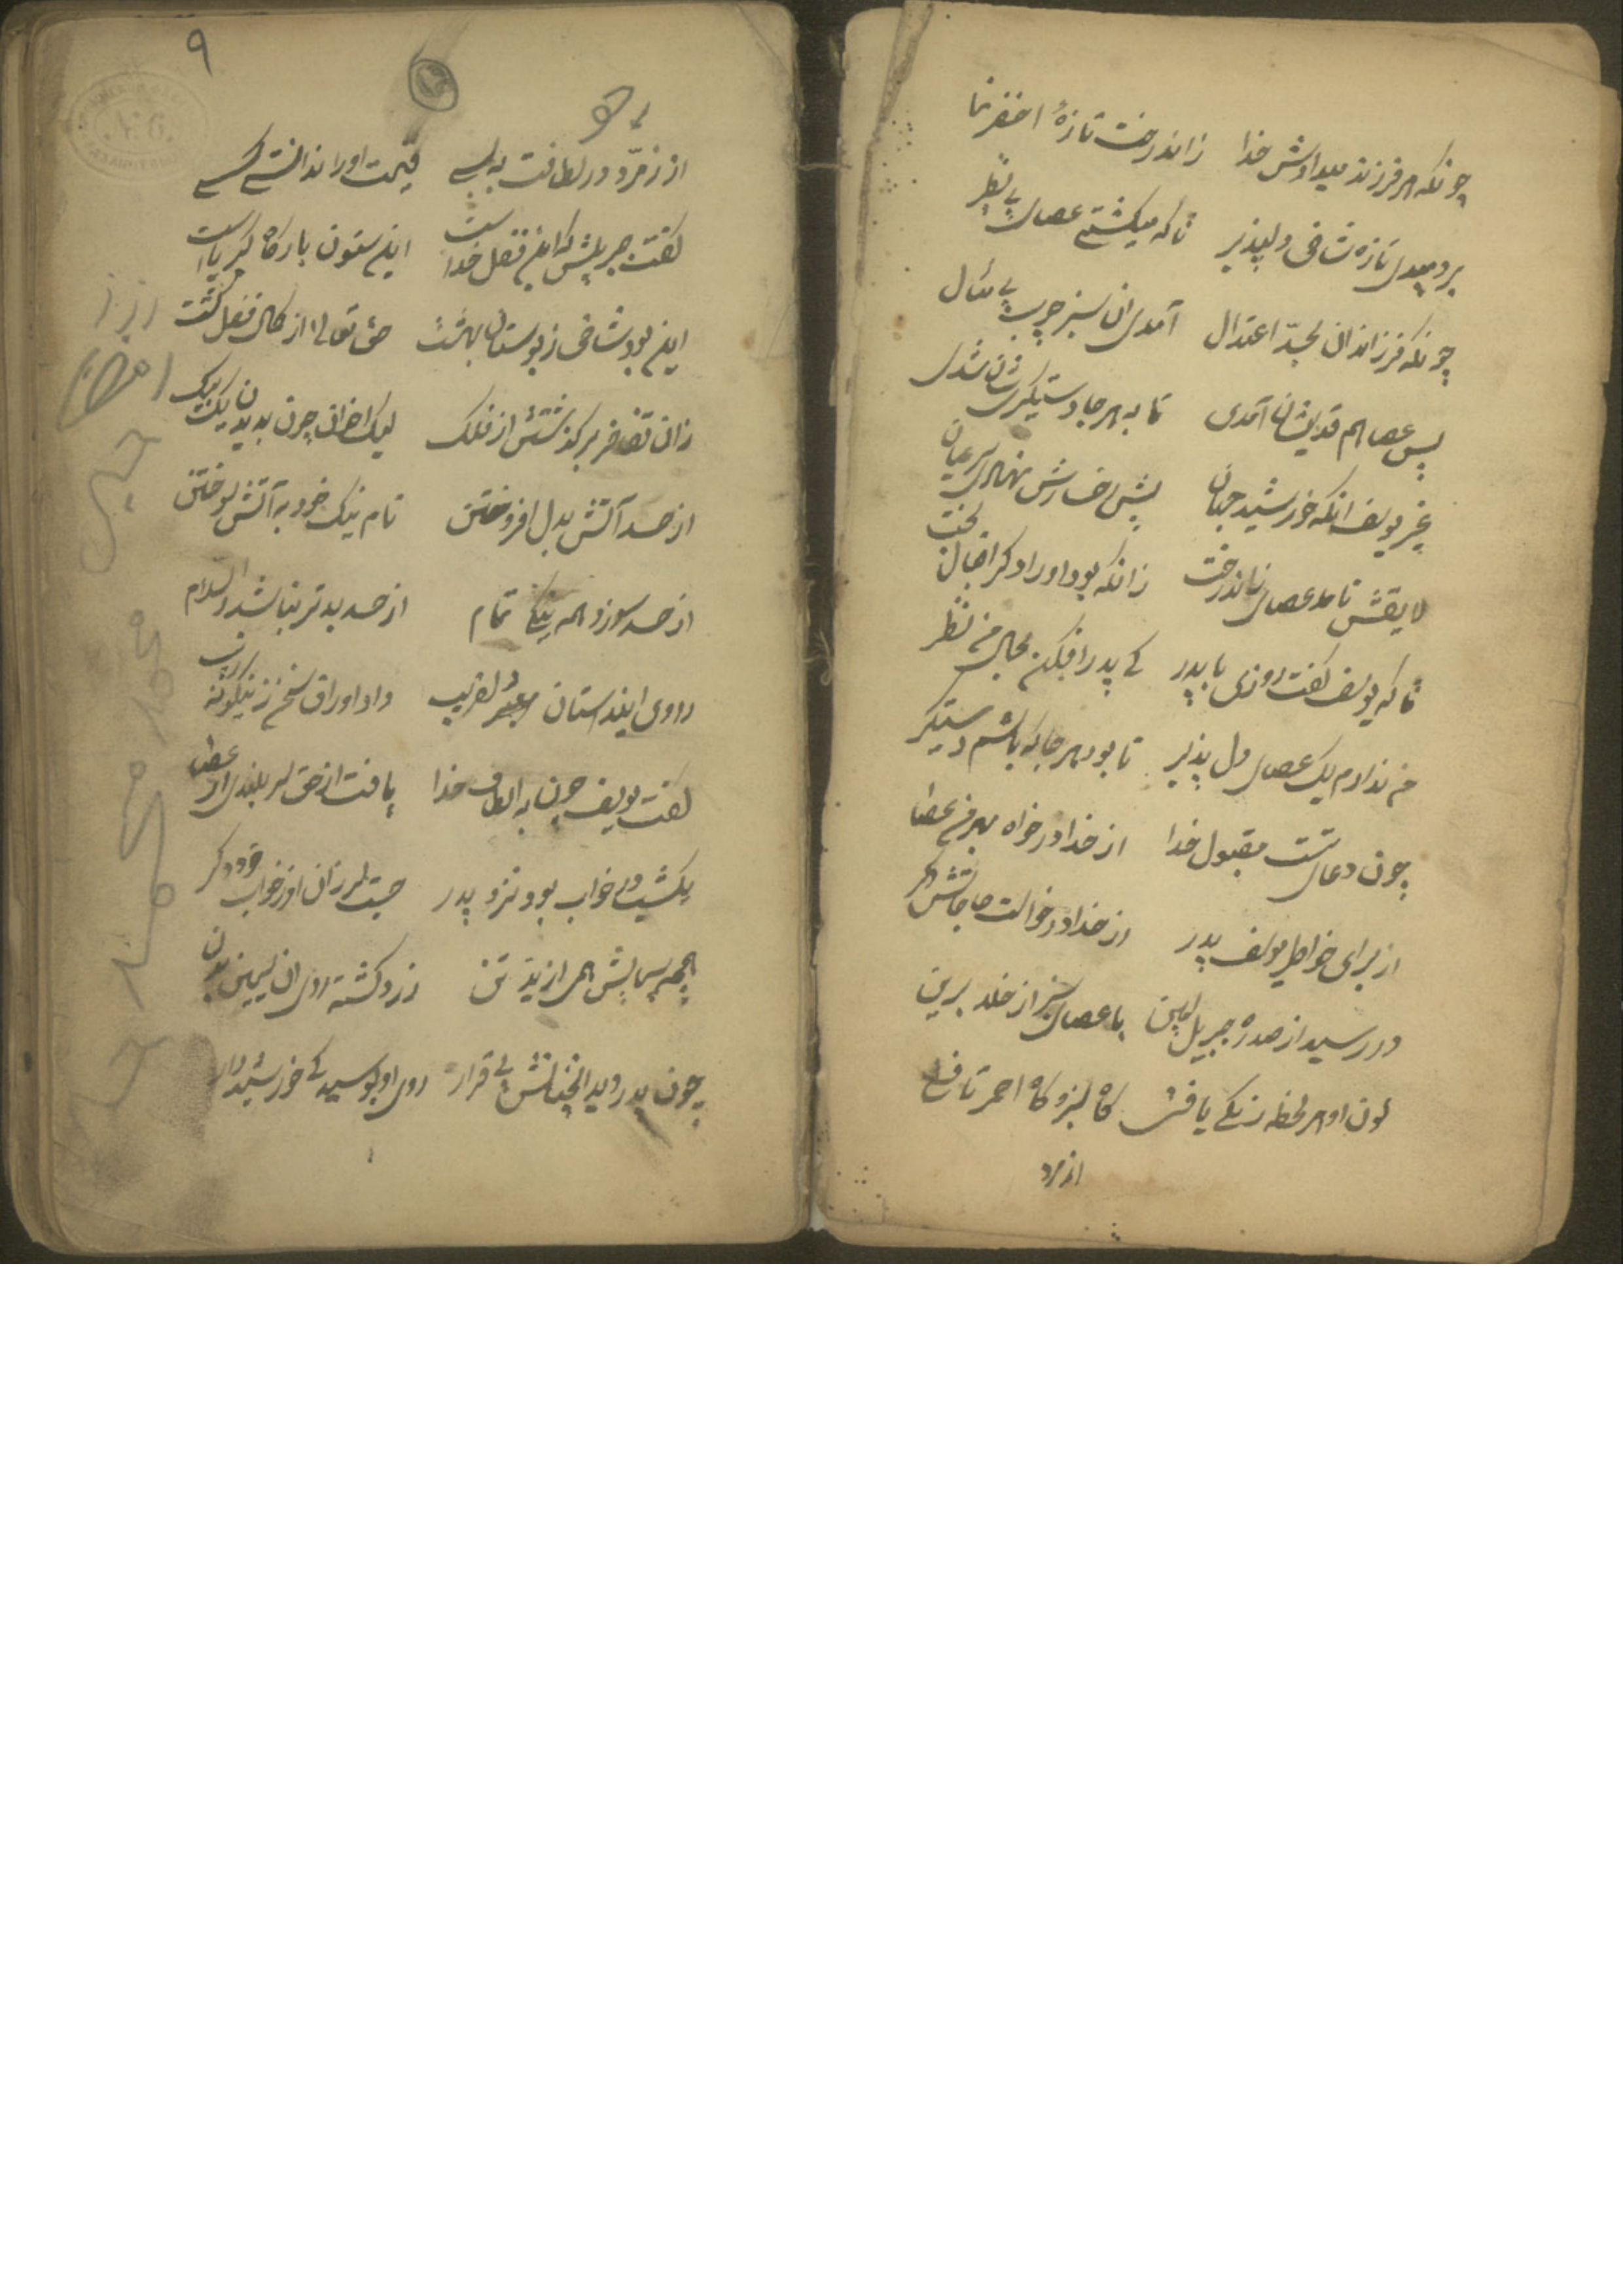 چونکه هر فرزند میدادش خدا زاندرخت تازهٔ اخضر نما
بردمیدی تازه شاخی دلپذیر تا که میکشتی عصای بی نظیر
چونکه فرزاندان بحدّ اعتدال آمدی ان سبز چوب بی مثال
پس عصا هم قد ایشان آمدی تا به هر جا دستیکرشان شدی
غیر یوسف انکه خورشید جهان پیش رخسارش نهادی سر عیان
لایقش نامد عصای زاندرخت زانکه بود او را دکر اقبال بخت
تا که یوسف کفت روزی با پدر کی پدر افکن بحال من نظر
من ندارم یک عصای دل پذیر تا بود هر جا که باشم دستیکر
چون دعای تست مقبول خدا از خدا در خواه بهر من عصا
از برای خواطر یوسف پدر از خدا درخواست حاجاتش دکر
در رسید از صدره جبریل امین با عصای سبز از خلد برین
لون او هر لحظه رنکی یافتی کاه سبز و کاه احمر تافتی
از زمرد
٩
از زمرّد در لطافت به بسی قیمت او را ندانستی کسی
کفت جبریلش که این فضل خداست این ستون بارکاه کبریاست
این بود شاخی ز بوستان بهشت حق تعالی از کمال فضل کشت
زان تفاخر برکذشتش از فلک لیک اخوان چون بدیدن یک بیک
از حسد آتش بدل افروختن نام نیک خود به آتش سوختن
از حسد سوزد همه نیکی تمام از حسد بدتر نباشد والسلام
راوی ایندستان لغریب داد اوراق سخن را نیکونه زیب
کفت یوسف چون به الطاف خدا یافت از حق سر بلندی از عصا
یکشبی در خواب بود نزد پدر جست لرزان او ز خواب خود دکر
همچو سیمابش همی لرزید تن زرد کشته روی ان سیمین بدن
چون پدر دید انچنانش بی قرار روی او بوسید کی خورشیدوار